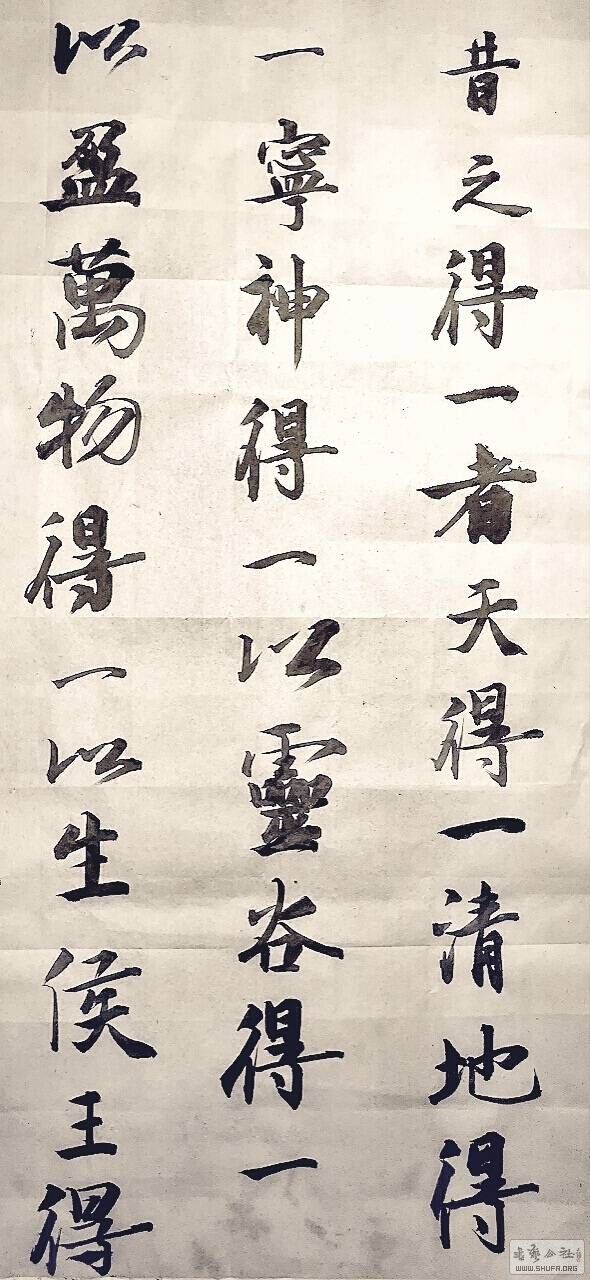 昔之得一者天得一清地得
一寧神得一以靈谷得一
以盈萬物得一以生侯王得
書艺公社
WWW.SHUFA.ORG